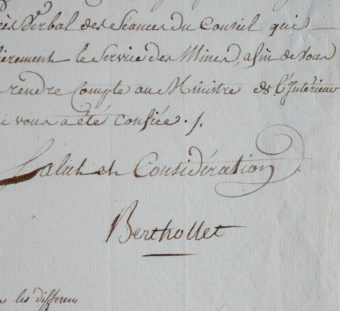 ès Verbal des Séances du Conseil qui
lièrement le Service des Mines, afin de Vous
rendre Compte au Ministre de l'Intérieur
i vous a été Confiée ./.
Salut et Considération
Berthollet
les différens